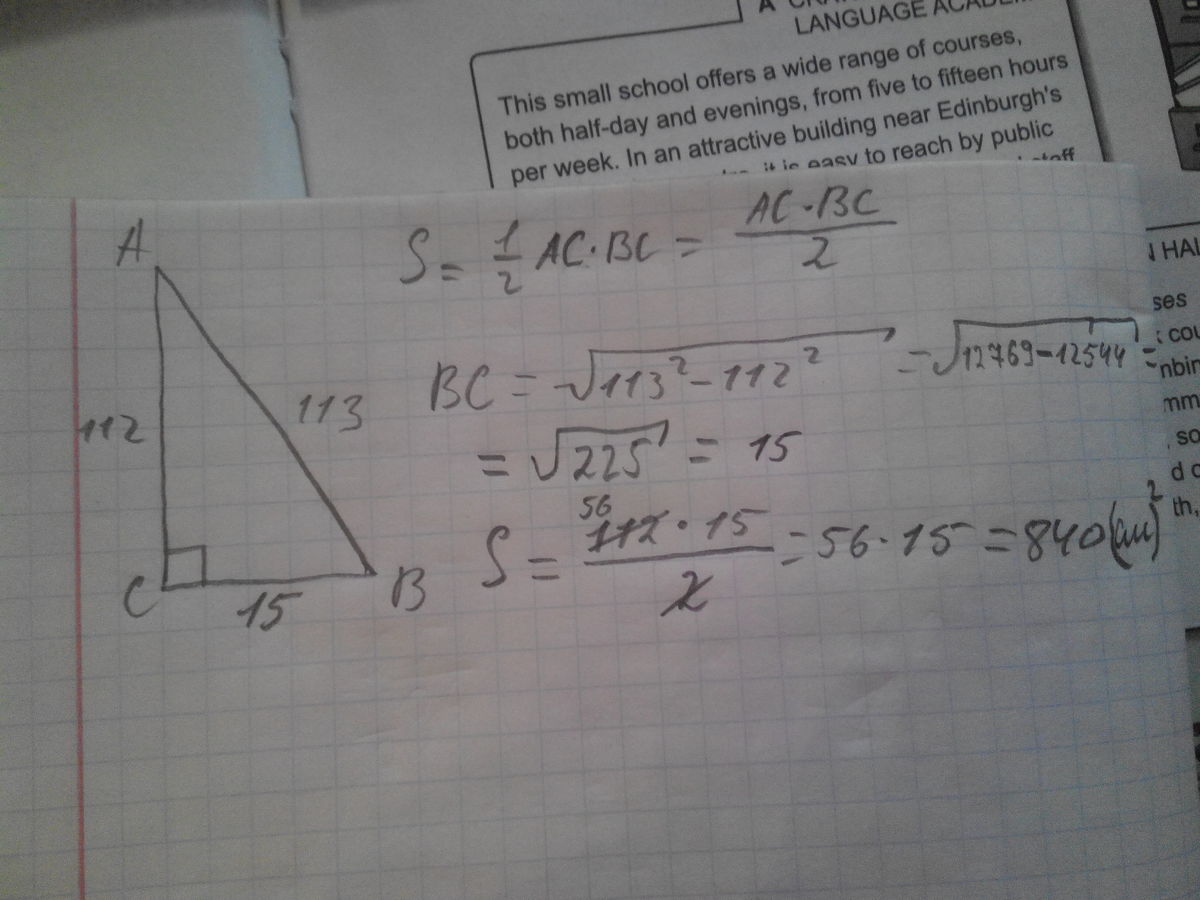 A
LANGUAGE
This small school offers a wide range of courses,
both half-day and evenings, from five to fifteen hours
per week. In an attractive building near Edinburgh's
it is easy to reach by public
staff
HAL
ses
cou
nbin
mm
so
d
th,
A
112
113
C
15
B
S = 1/2 AC·BC = AC·BC/2
BC = √113² - 112² = √12769-12544 =
= √225 = 15
56
S = 112·15/2 = 56·15 = 840(см)²